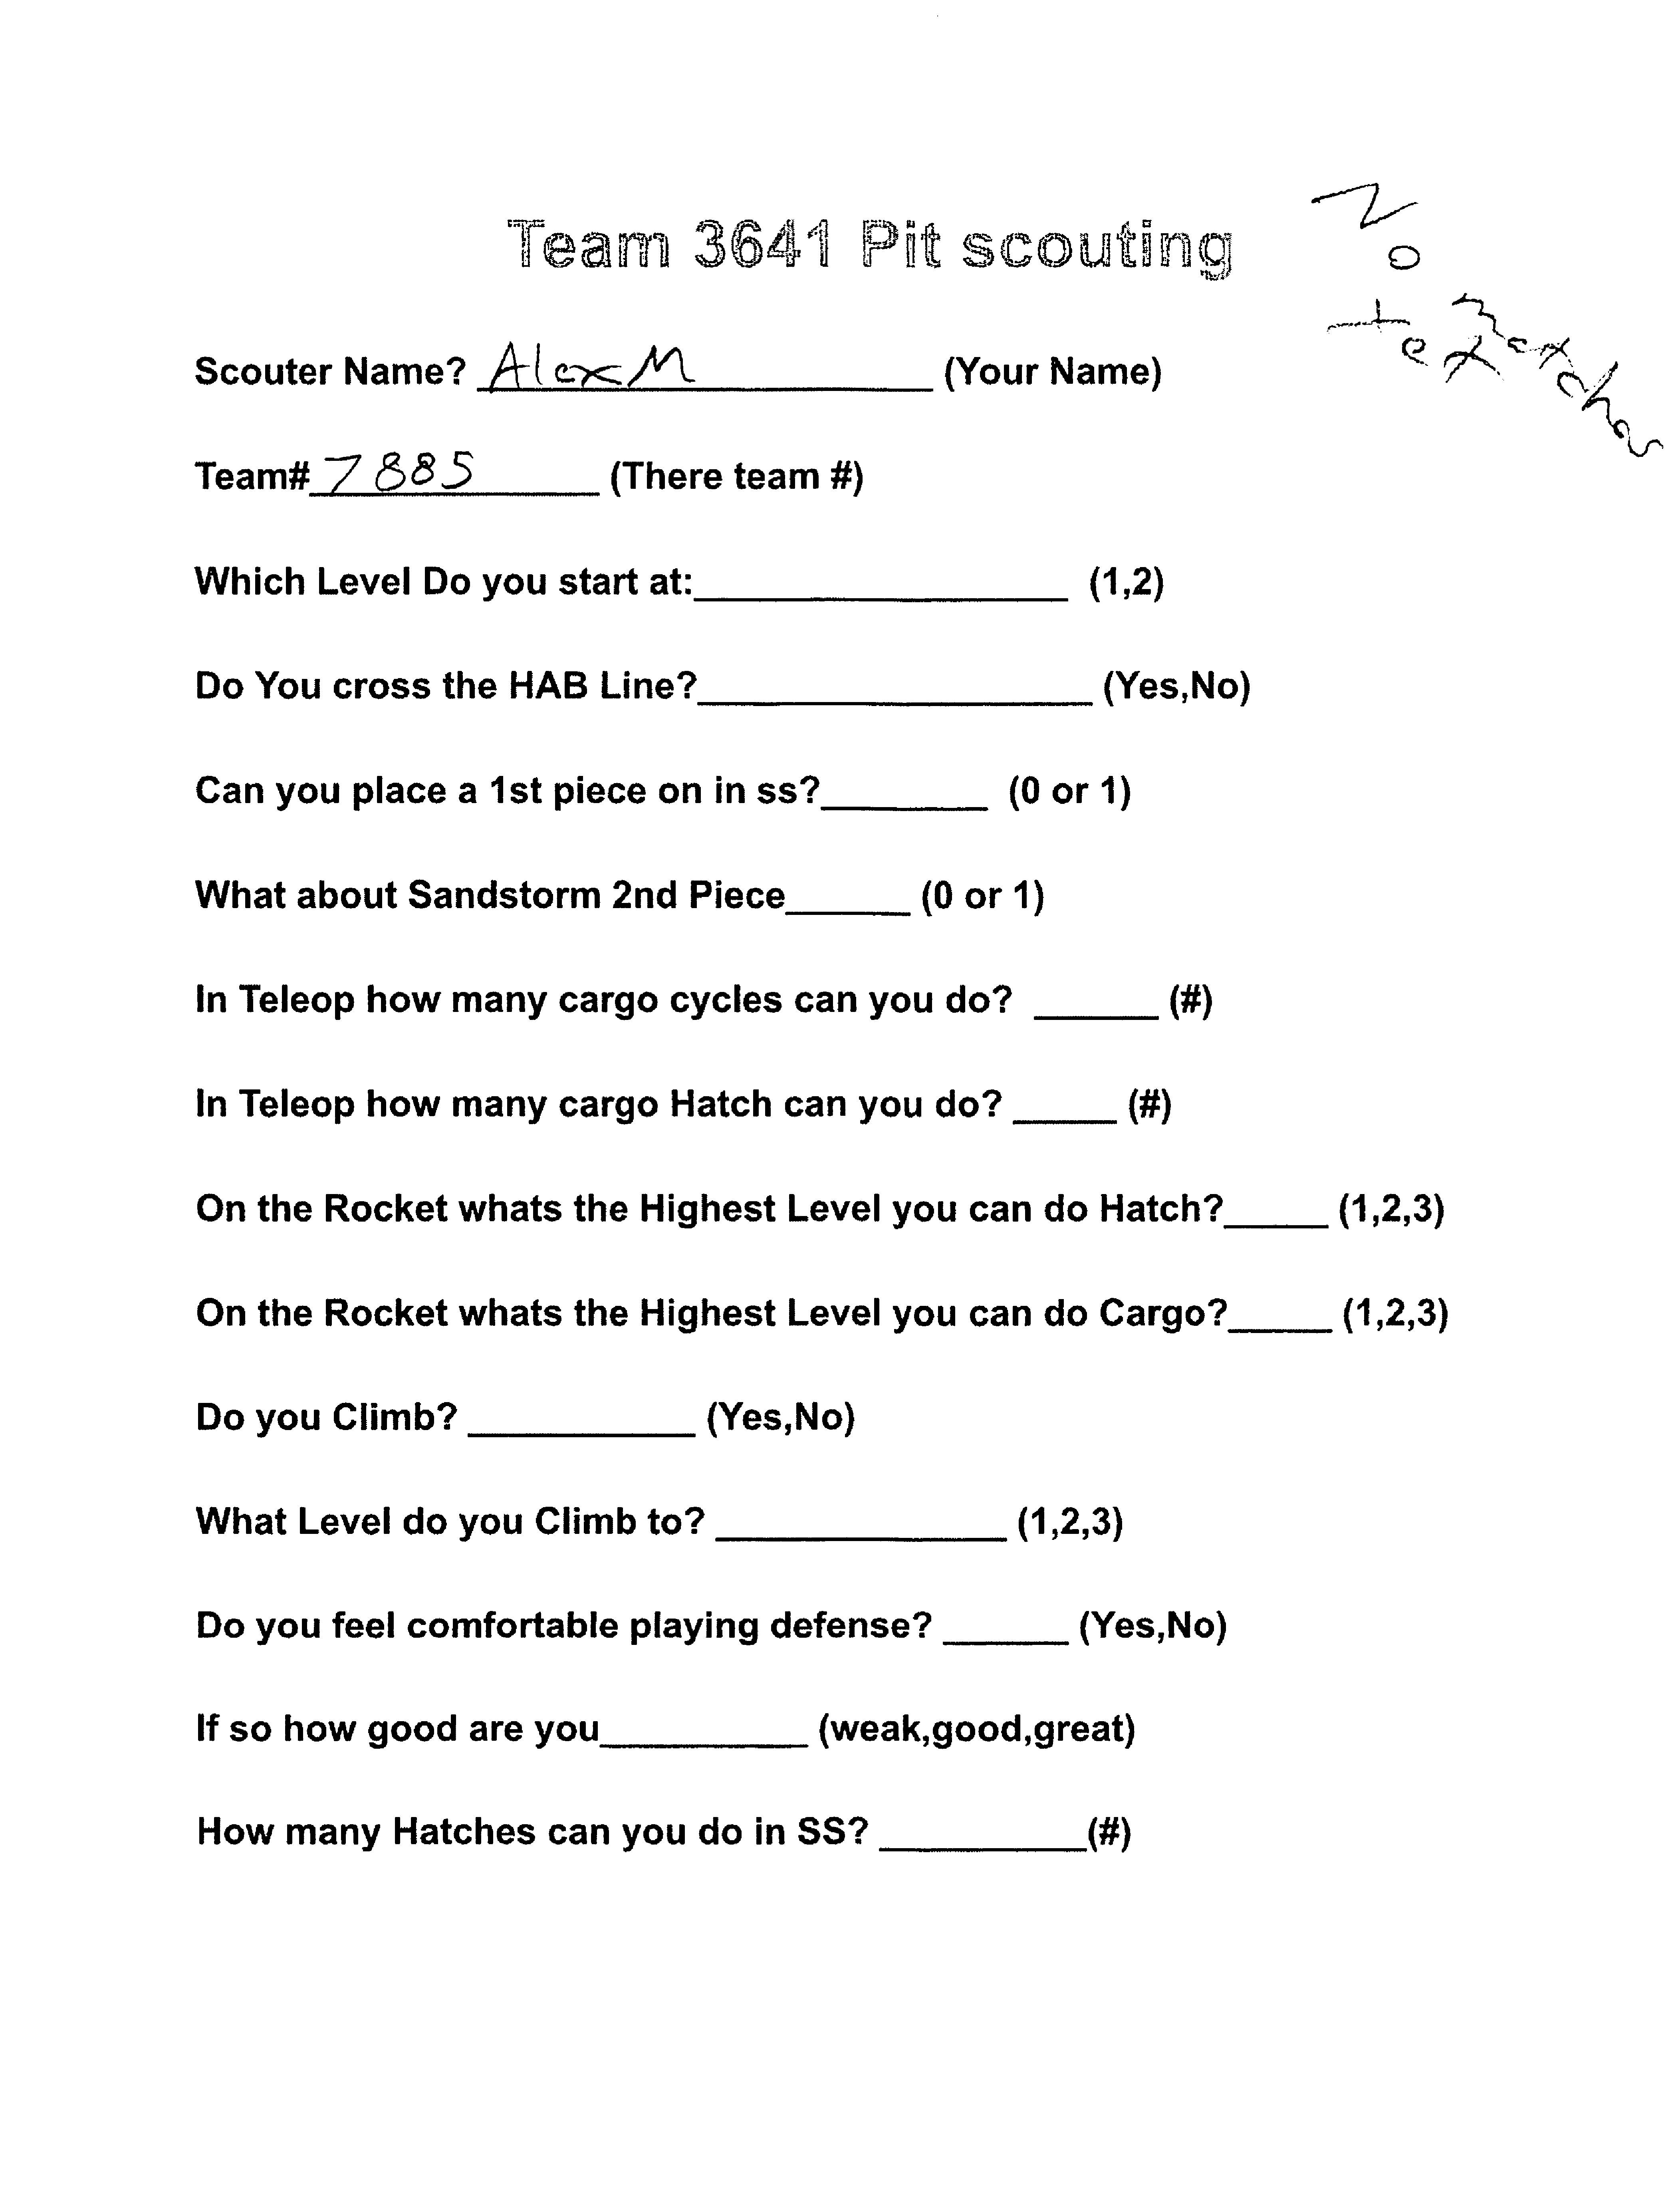 Team 3641 Pit scouting
No
tex matches
Scouter Name? Alex M (Your Name)
Team# 7885 (There team #)
Which Level Do you start at:__________________ (1,2)
Do You cross the HAB Line?___________________ (Yes,No)
Can you place a 1st piece on in ss?________ (0 or 1)
What about Sandstorm 2nd Piece______ (0 or 1)
In Teleop how many cargo cycles can you do? ______ (#)
In Teleop how many cargo Hatch can you do? _____ (#)
On the Rocket whats the Highest Level you can do Hatch?_____ (1,2,3)
On the Rocket whats the Highest Level you can do Cargo?_____ (1,2,3)
Do you Climb? ___________ (Yes,No)
What Level do you Climb to? ______________ (1,2,3)
Do you feel comfortable playing defense? ______ (Yes,No)
If so how good are you__________ (weak,good,great)
How many Hatches can you do in SS? __________(#)